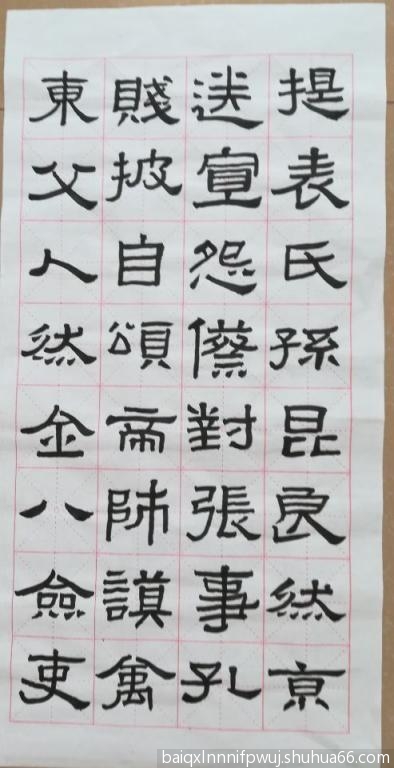 提表氏孫昆良然京
送宣怨僚對張事孔
賤披自頌帝師謨萬
東父人然金八僉吏
baiqxlnnnifpwuj.shuhua66.com